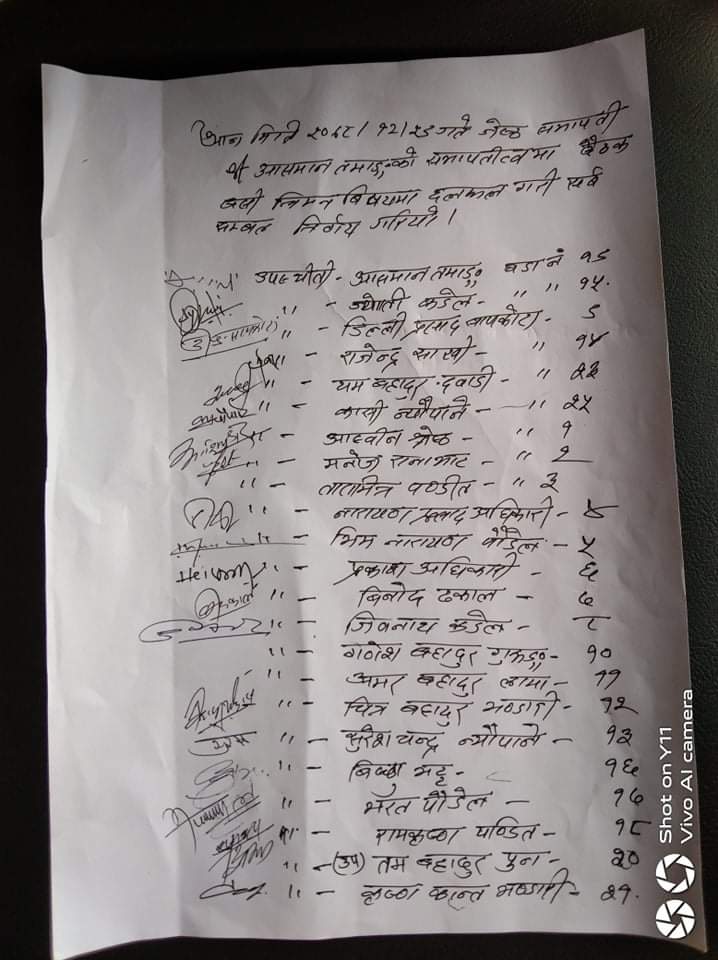 आज मिति २०७८/१२/२३ गते जेष्ठ सभापती
श्री आसमान तमाङ्गको सभापतीत्वमा बैठक
बसी निम्न बिषयमा छलफल गरी सर्व
सम्मत निर्णय गरियो ।
उपस्थीती - आसमान तमाङ्ग वडा नं १९
" - ज्योती कडेल - " " १५.
" - डिल्ली प्रसाद बापकोटा - ९
" - राजेन्द्र सार्की - " १४
" - यम बहादुर दवाडी - " २३
" - काशी न्यौपाने - " २५
" - आश्वीन श्रेष्ठ - " १
" - मनोज रानाभाट - " २
" - तारामित्र पण्डीत - " ३
" - नारायण प्रसाद अधिकारी - ४
" - भिम नारायण पौडेल - ५
" - प्रकाश अधिकारी - ६
" - बिनोद ढकाल - ७
" - जिवनाथ कडेल - ८
" - गणेश बहादुर गुरुङ्ग - १०
" - अमर बहादुर लामा - ११
" - चित्र बहादुर भण्डारी - १२
" - सुरेश चन्द्र न्यौपाने - १३
" - बिष्णु भट्ट - १६
" - भरत पौडेल - १७
" - रामकृष्ण पण्डित - १८
" - (उप) तम बहादुर पुन - २०
" - कृष्ण कान्त भण्डारी - २१.
Shot on Y11
Vivo AI camera